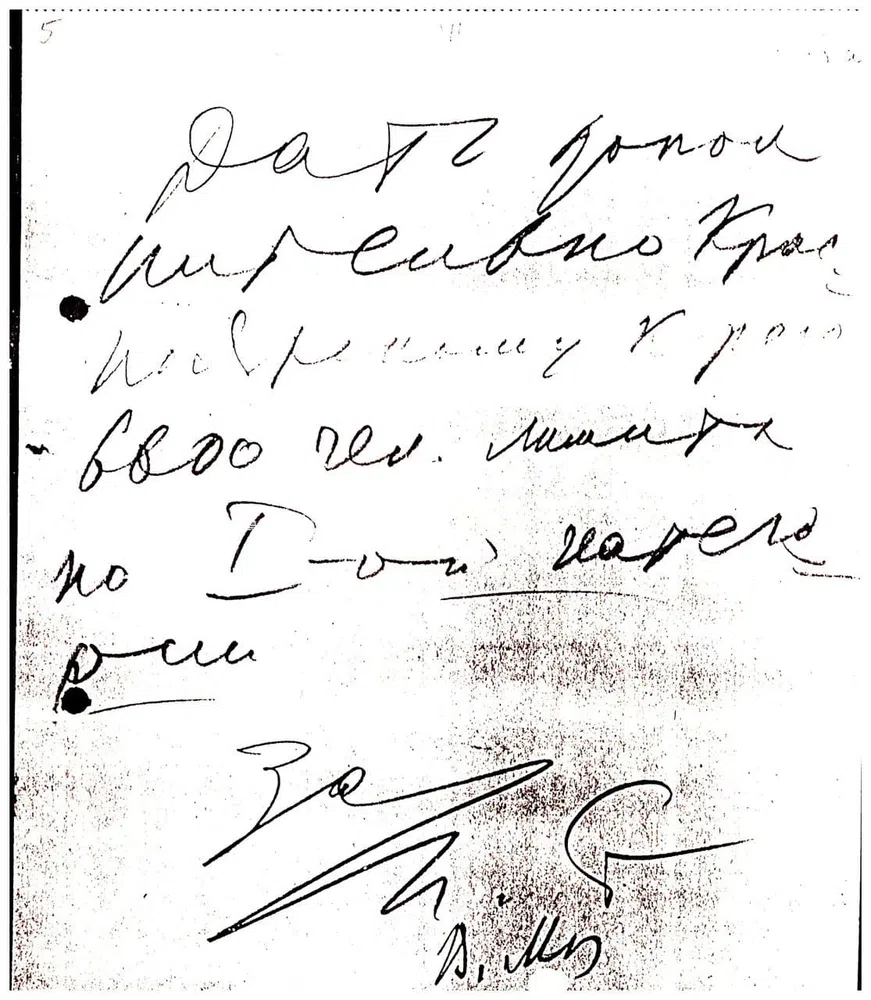 5
Дать допол
нительно Крас
ноярскому краю
6600 чел. лимита
по I-ой катего
рии
За
И. Ст
В. Мол